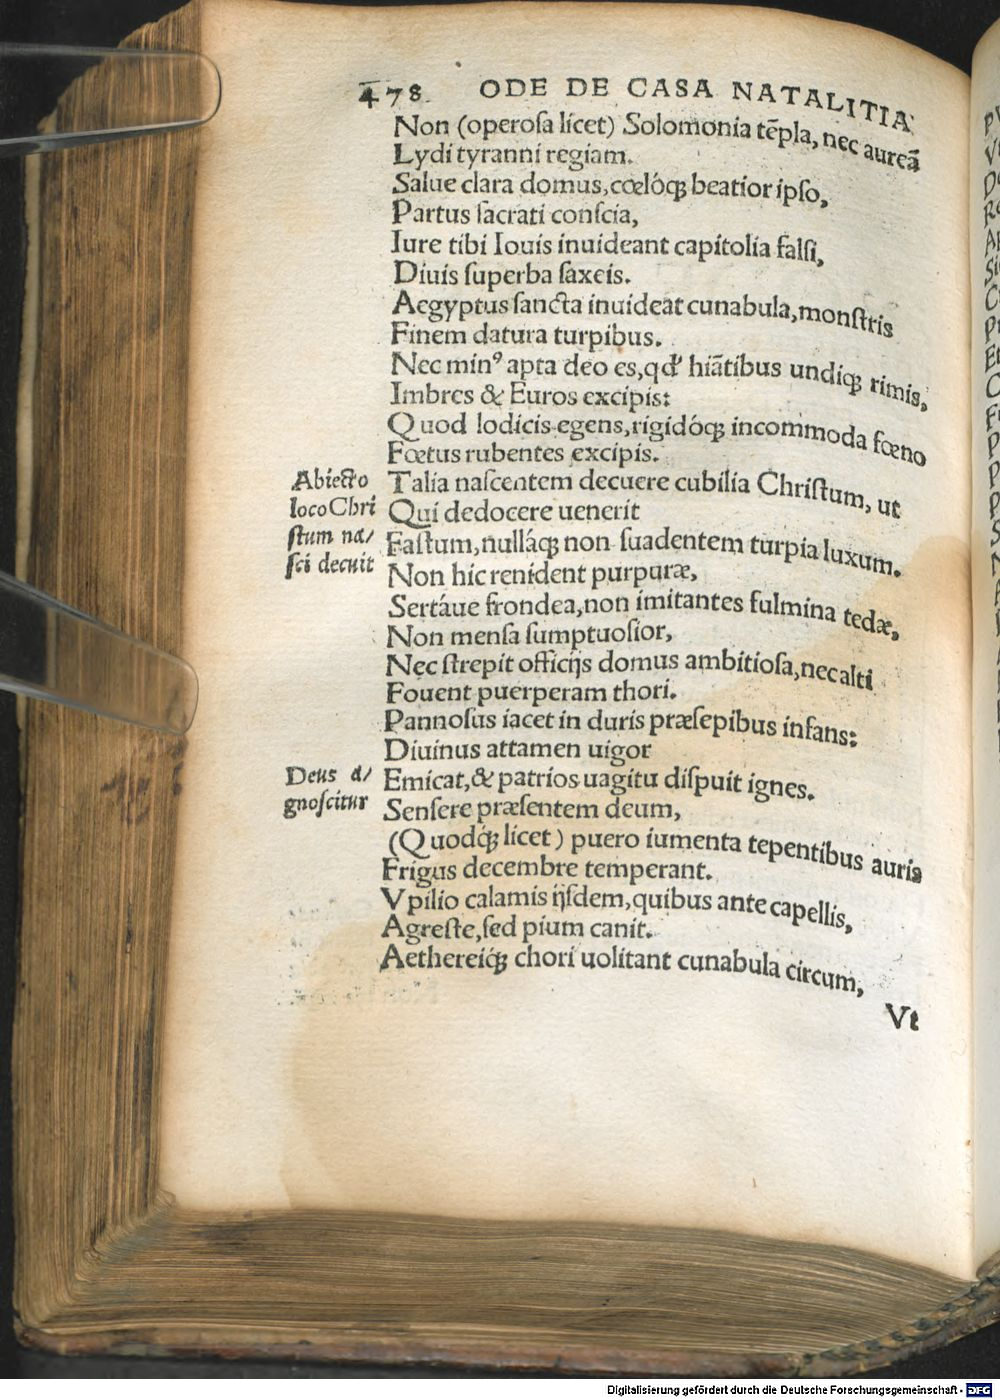 478 ODE DE CASA NATALITIA
Non (operoſa licet) Solomonia tēpla, nec aureā
Lydi tyranni regiam.
Salue clara domus, cœlóq; beatior ipſo,
Partus ſacrati conſcia,
Iure tibi Iouis inuideant capitolia falſi,
Diuis ſuperba ſaxeis.
Aegyptus ſancta inuideat cunabula, monſtris
Finem datura turpibus.
Nec minꝰ apta deo es, qđ hiātibus undiq; rimis,
Imbres & Euros excipis:
Quod lodicis egens, rigidóq; incommoda fœno
Fœtus rubentes excipis.
Abiecto
loco Chri
ſtum na/
ſci decuit
Talia naſcentem decuere cubilia Chriſtum, ut
Qui dedocere uenerit
Faſtum, nulláq; non ſuadentem turpia luxum.
Non hic renident purpuræ,
Sertáue frondea, non imitantes fulmina tedæ,
Non menſa ſumptuoſior,
Nec ſtrepit officijs domus ambitioſa, nec alti
Fouent puerperam thori.
Pannoſus iacet in duris præſepibus infans:
Diuinus attamen uigor
Deus a/
gnoſcitur
Emicat, & patrios uagitu diſpuit ignes.
Senſere præſentem deum,
(Quodq; licet) puero iumenta tepentibus auris
Frigus decembre temperant.
Vpilio calamis ijſdem, quibus ante capellis,
Agreſte, ſed pium canit.
Aethereiq; chori uolitant cunabula circum,
Vt
Digitalisierung gefördert durch die Deutsche Forschungsgemeinschaft - DFG